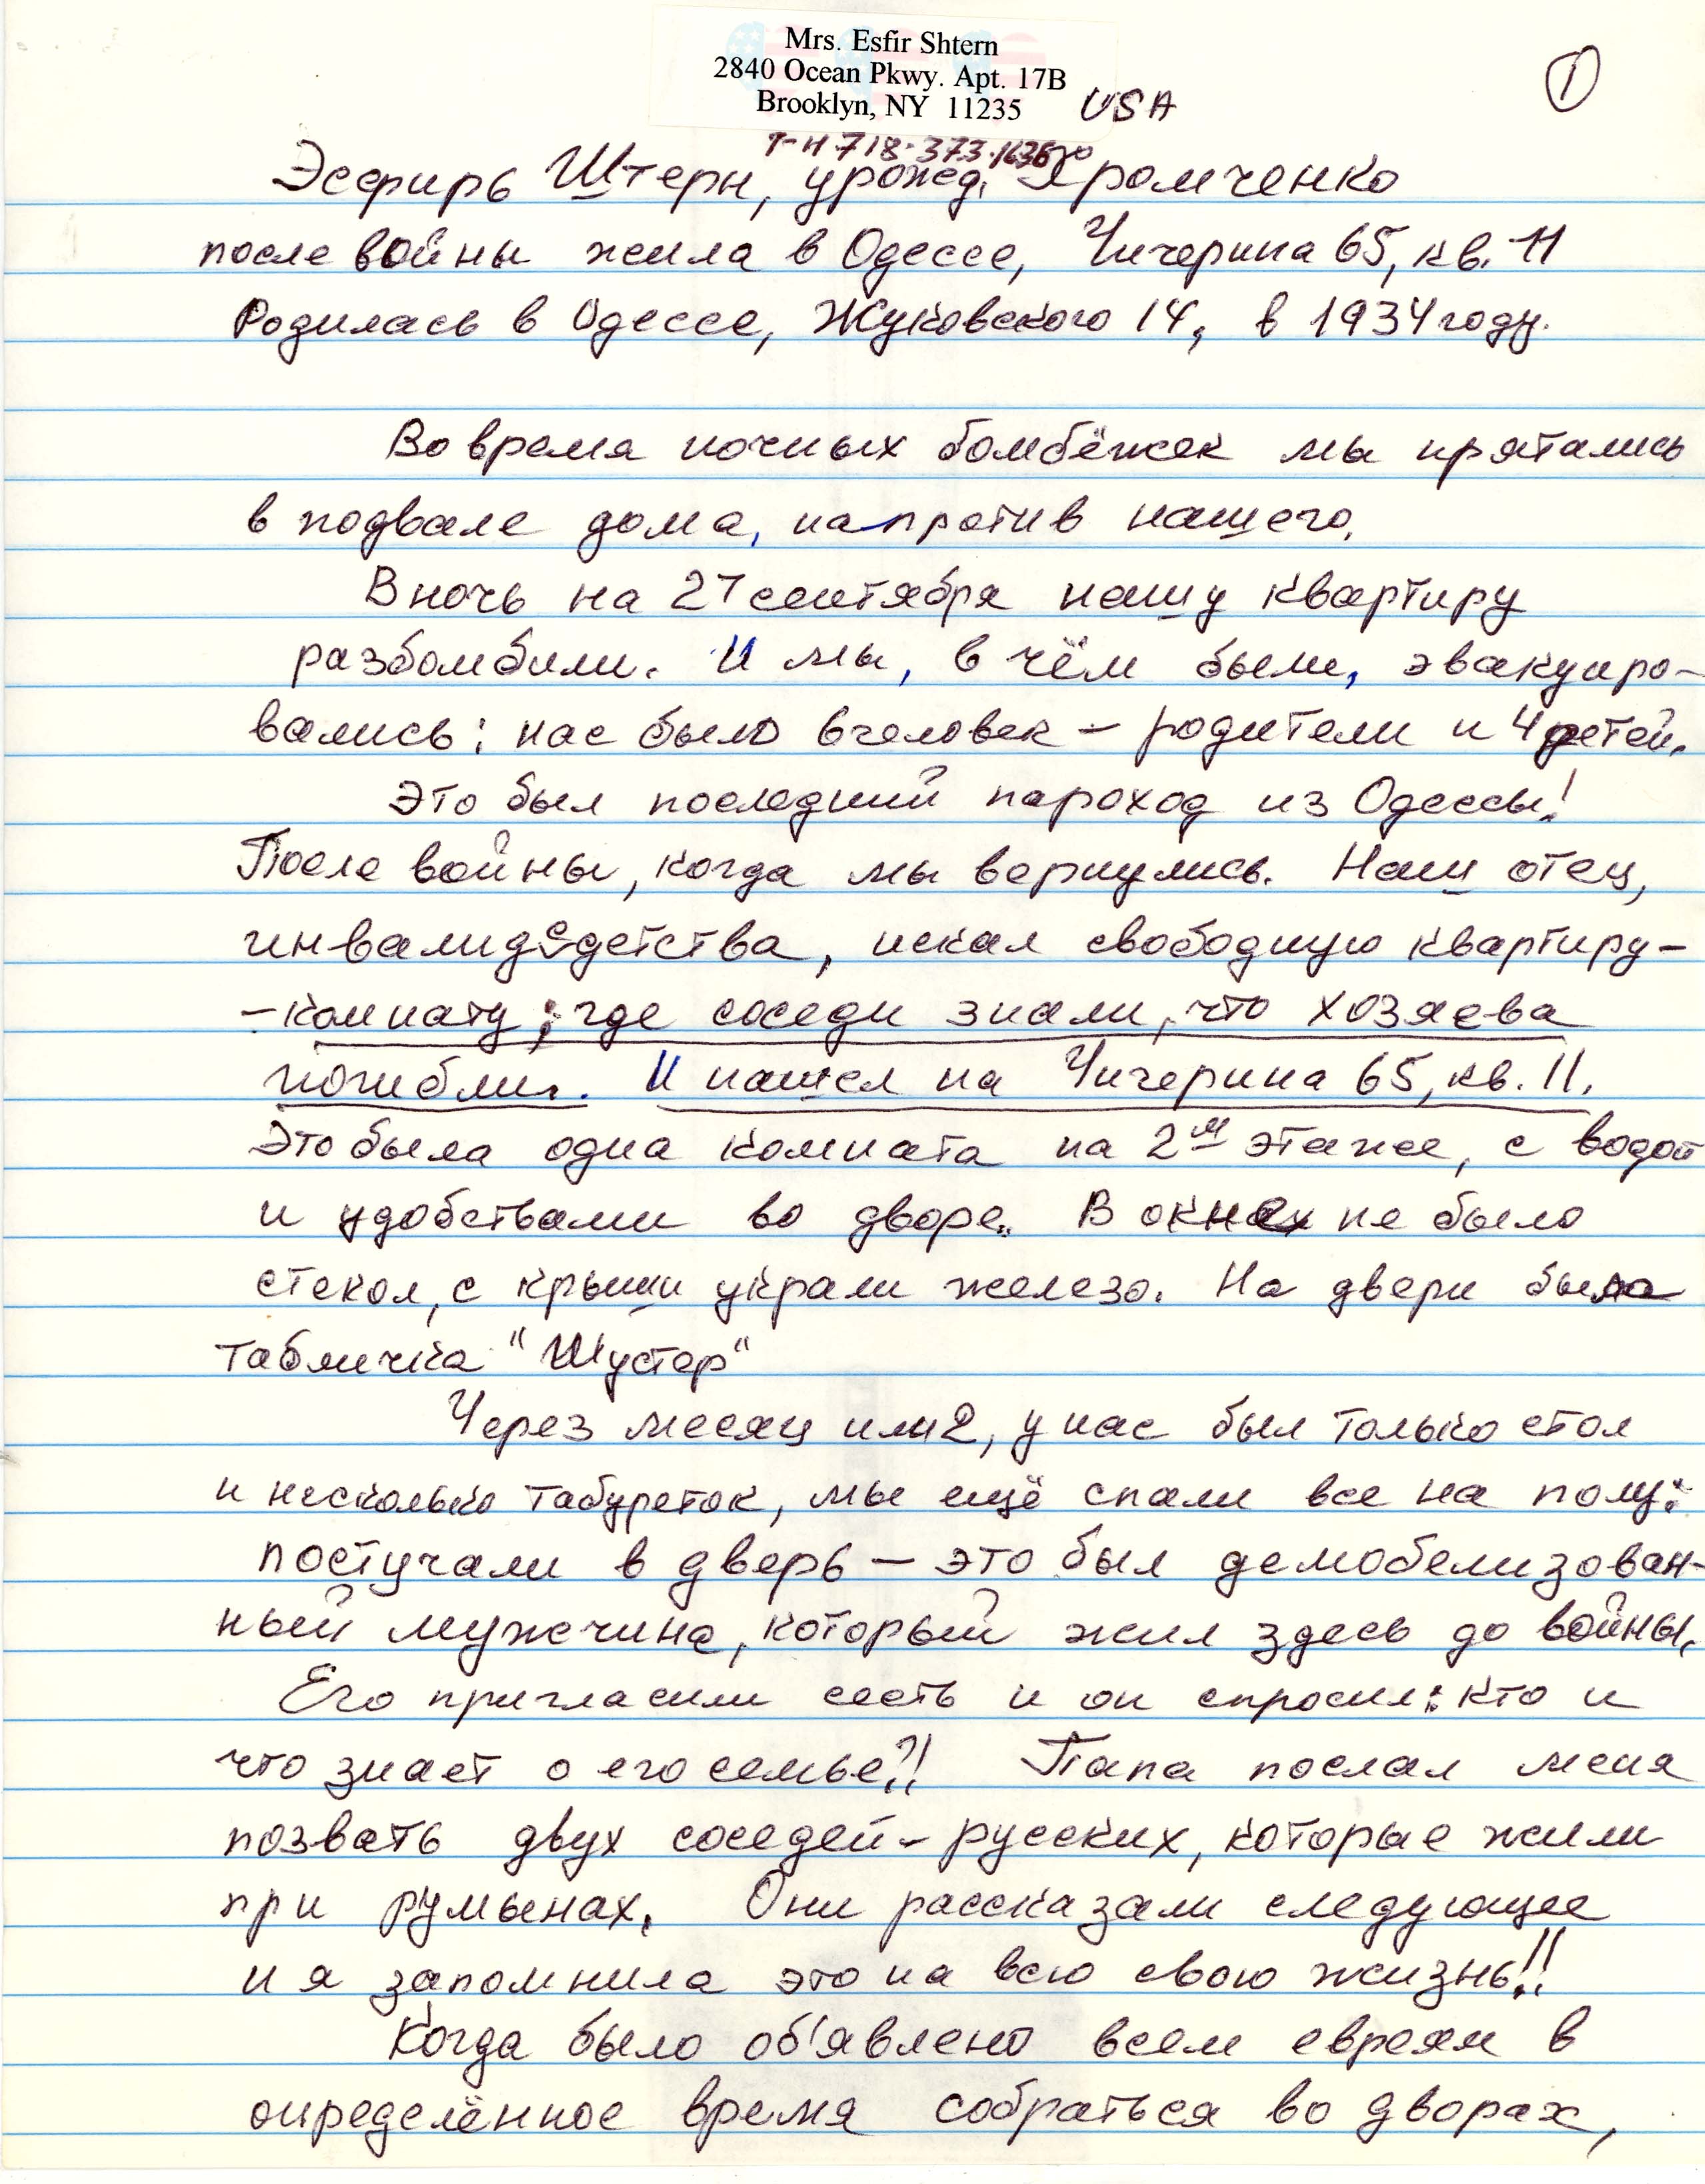 Mrs. Esfir Shtern
2840 Ocean Pkwy. Apt. 17B
Brooklyn, NY 11235 USA
①
Т-Н 718-373-1636
Эсфирь Штерн, урожд. Хромченко
после войны жила в Одессе, Чичерина 65, кв. 11
Родилась в Одессе, Жуковского 14, в 1934 году.
Во время ночных бомбёжек мы прятались
в подвале дома, напротив нашего.
В ночь на 27 сентября нашу квартиру
разбомбили. И мы, в чём были, эвакуиро-
вались: нас было 6 человек – родители и 4 детей.
Это был последний пароход из Одессы!
После войны, когда мы вернулись. Наш отец,
инвалид с детства, искал свободную квартиру-
-комнату; где соседи знали, что хозяева
погибли. И нашел на Чичерина 65, кв. 11.
Это была одна комната на 2м этаже, с водой
и удобствами во дворе. В окнах не было
стекол, с крыши украли железо. На двери была
табличка "Шустер"
Через месяц или 2, у нас был только стол
и несколько табуреток, мы ещё спали все на полу:
постучали в дверь – это был демобелизован-
ный мужчина, который жил здесь до войны.
Его пригласили сесть и он спросил: кто и
что знает о его семье?! Папа послал меня
позвать двух соседей-русских, которые жили
при румынах. Они рассказали следующее
и я запомнила это на всю свою жизнь!!
Когда было об'явлено всем евреям в
определённое время собраться во дворах,